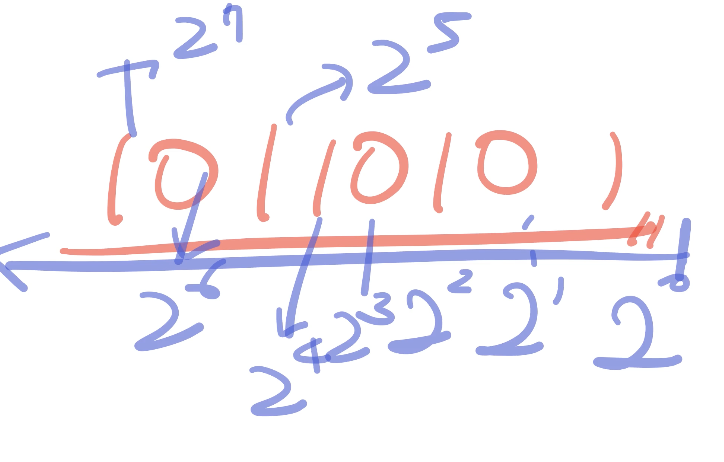 2⁷ 2⁵
1 0 1 1 0 1 0 1
2⁶ 2⁴ 2³ 2² 2¹ 2⁰